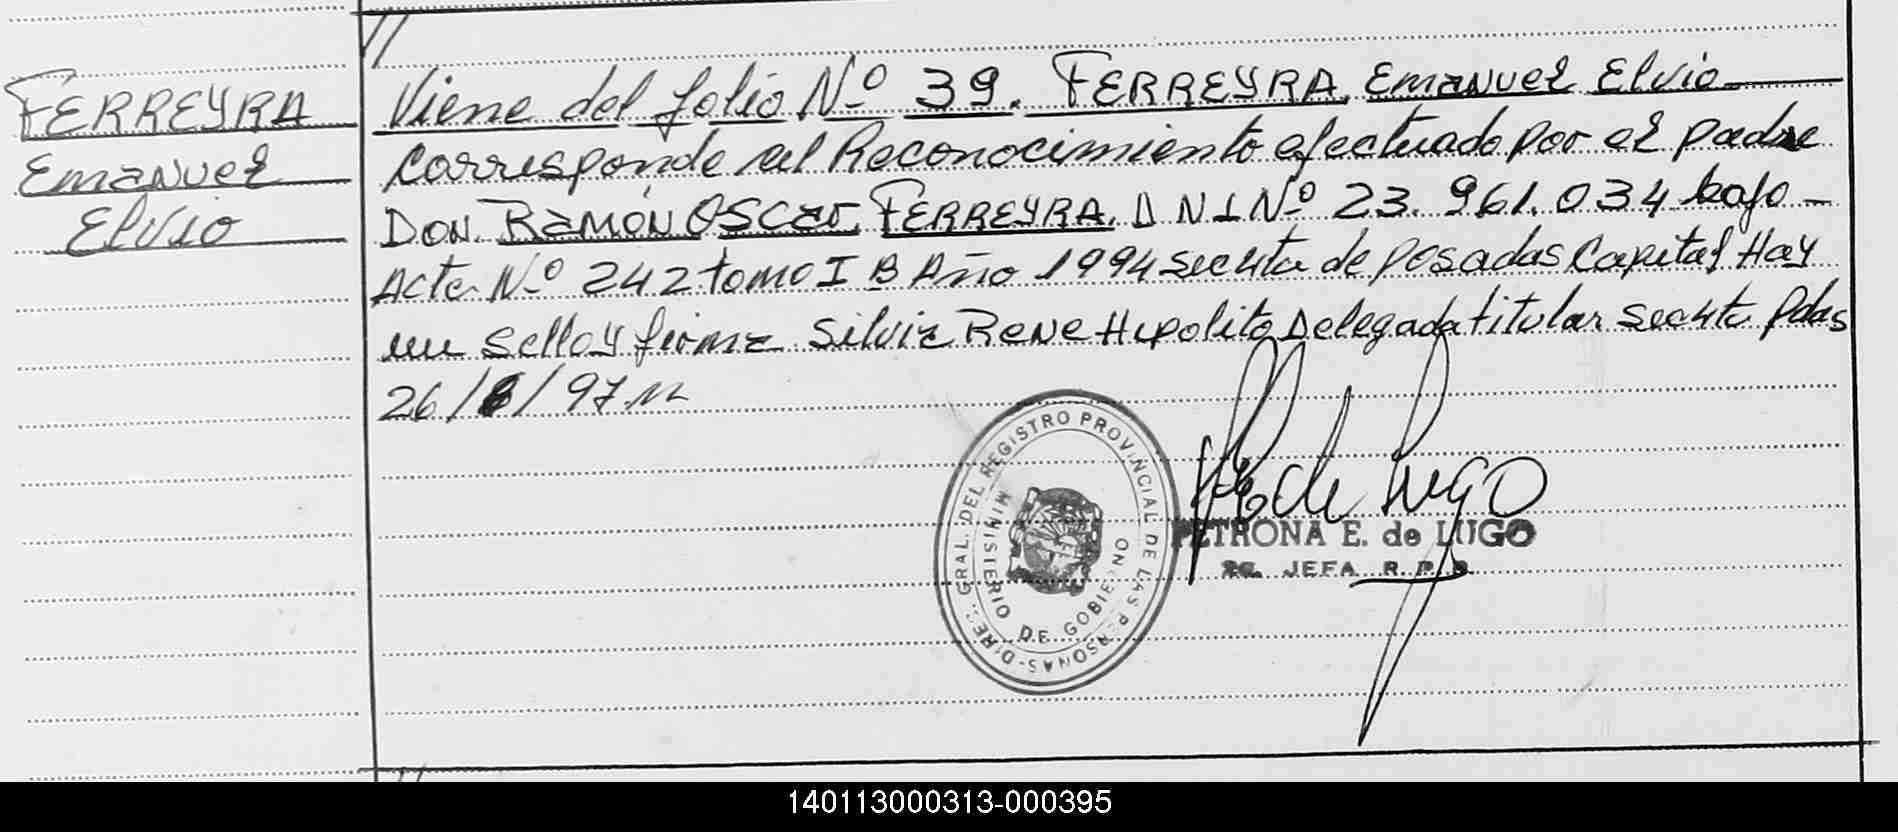 FERREYRA
Emanuel
Elvio
Viene del folio Nº 39. FERREYRA, Emanuel Elvio
Corresponde al Reconocimiento efectuado por el padre
DON. RAMÓN OSCAR FERREYRA. DNI Nº 23.961.034 bajo
Acta Nº 242 tomo I B Año 1994 secc 4ta de Posadas Capital Hay
un sello y firma Silvia Rene Hipolito Delegada titular secc 4ta Pdas
26/8/97
DIREC. GRAL. DEL REGISTRO PROVINCIAL DE LAS PERSONAS
MINISTERIO DE GOBIERNO
PETRONA E. de LUGO
JEFA R.P.
140113000313-000395